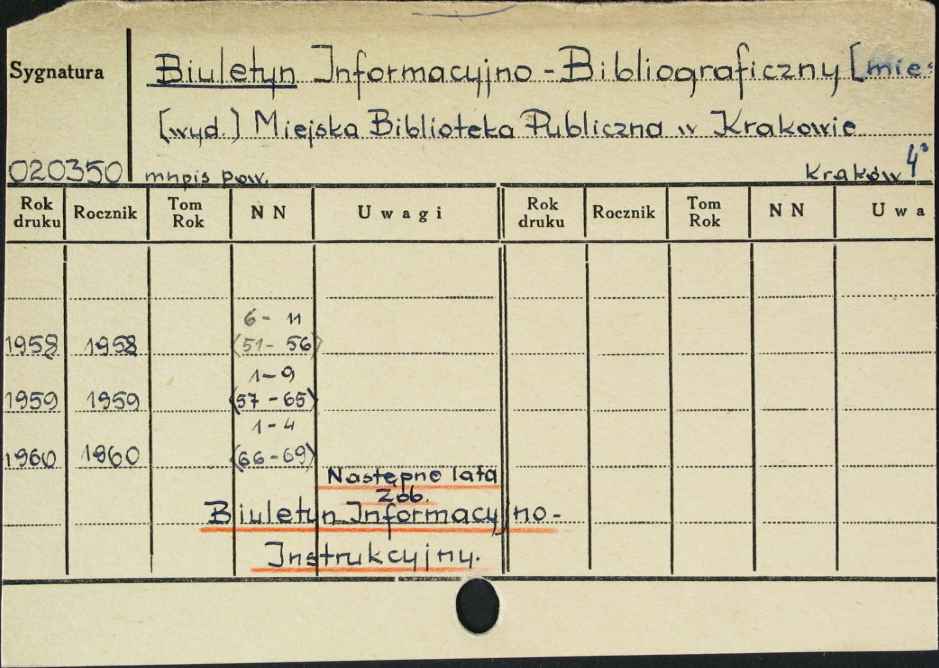 Sygnatura
Biuletyn Informacyjno - Bibliograficzny [mies
[wyd.] Miejska Biblioteka Publiczna w Krakowie
020350 mnpis pow. Kraków 4°
Rok druku Rocznik Tom Rok NN Uwagi Rok druku Rocznik Tom Rok NN Uwa
6 - 11
1958 1958 (51 - 56)
1 - 9
1959 1959 (57 - 65)
1 - 4
1960 1960 (66 - 69)
Następne lata
zob.
Biuletyn Informacyjno-
Instrukcyjny.